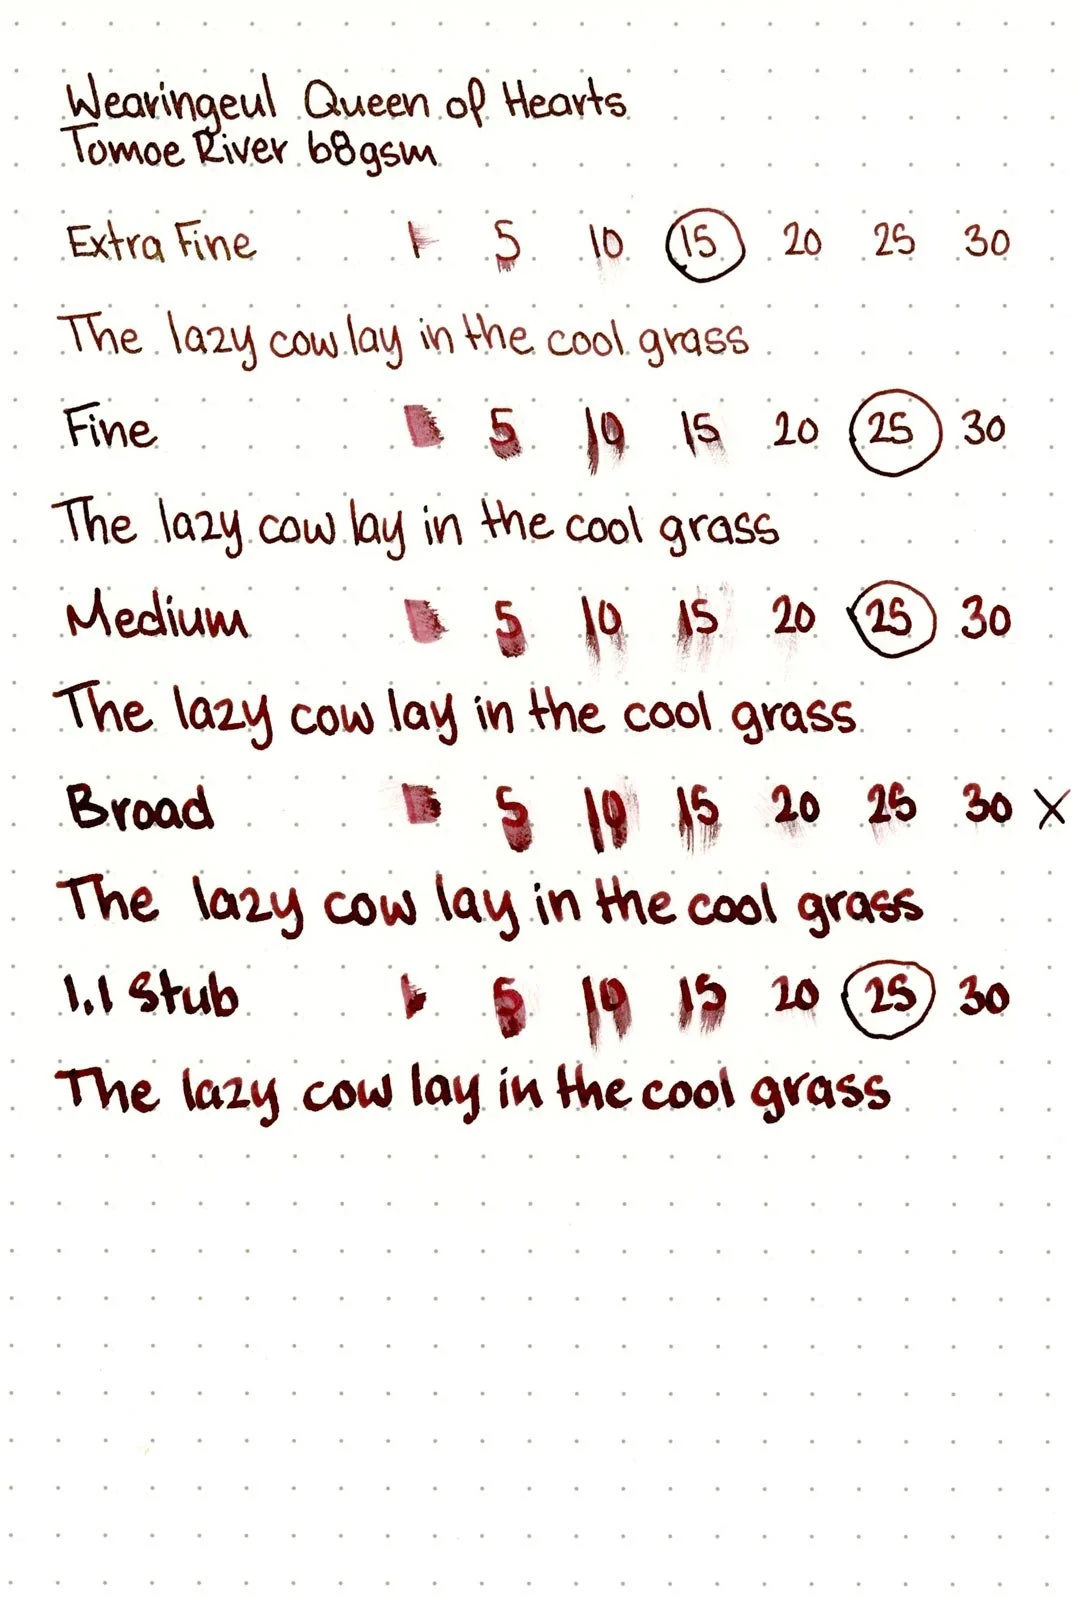 Wearingeul Queen of Hearts
Tomoe River 68gsm
Extra Fine 1 5 10 15 20 25 30
The lazy cow lay in the cool grass
Fine 5 10 15 20 25 30
The lazy cow lay in the cool grass
Medium 5 10 15 20 25 30
The lazy cow lay in the cool grass
Broad 5 10 15 20 25 30 X
The lazy cow lay in the cool grass
1.1 Stub 5 10 15 20 25 30
The lazy cow lay in the cool grass